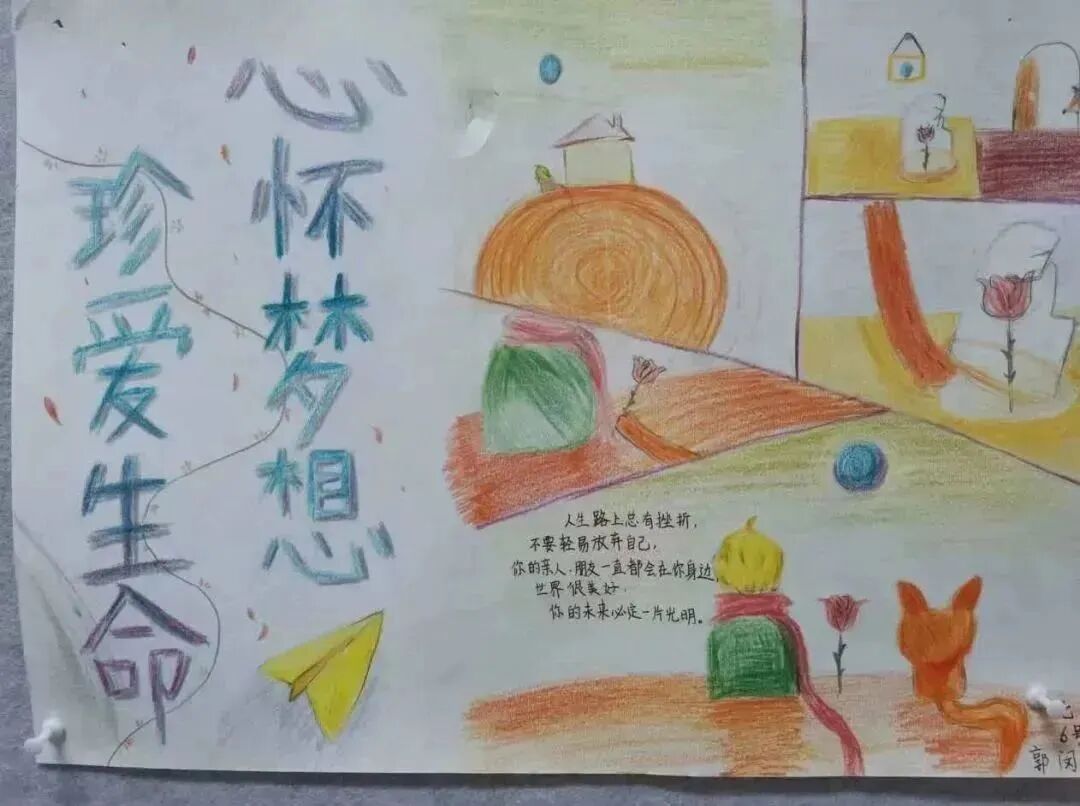 心怀梦想
珍爱生命
人生路上总有挫折，
不要轻易放弃自己，
你的亲人、朋友一直都会在你身边，
世界很美好，
你的未来必定一片光明。
6号
郭闵